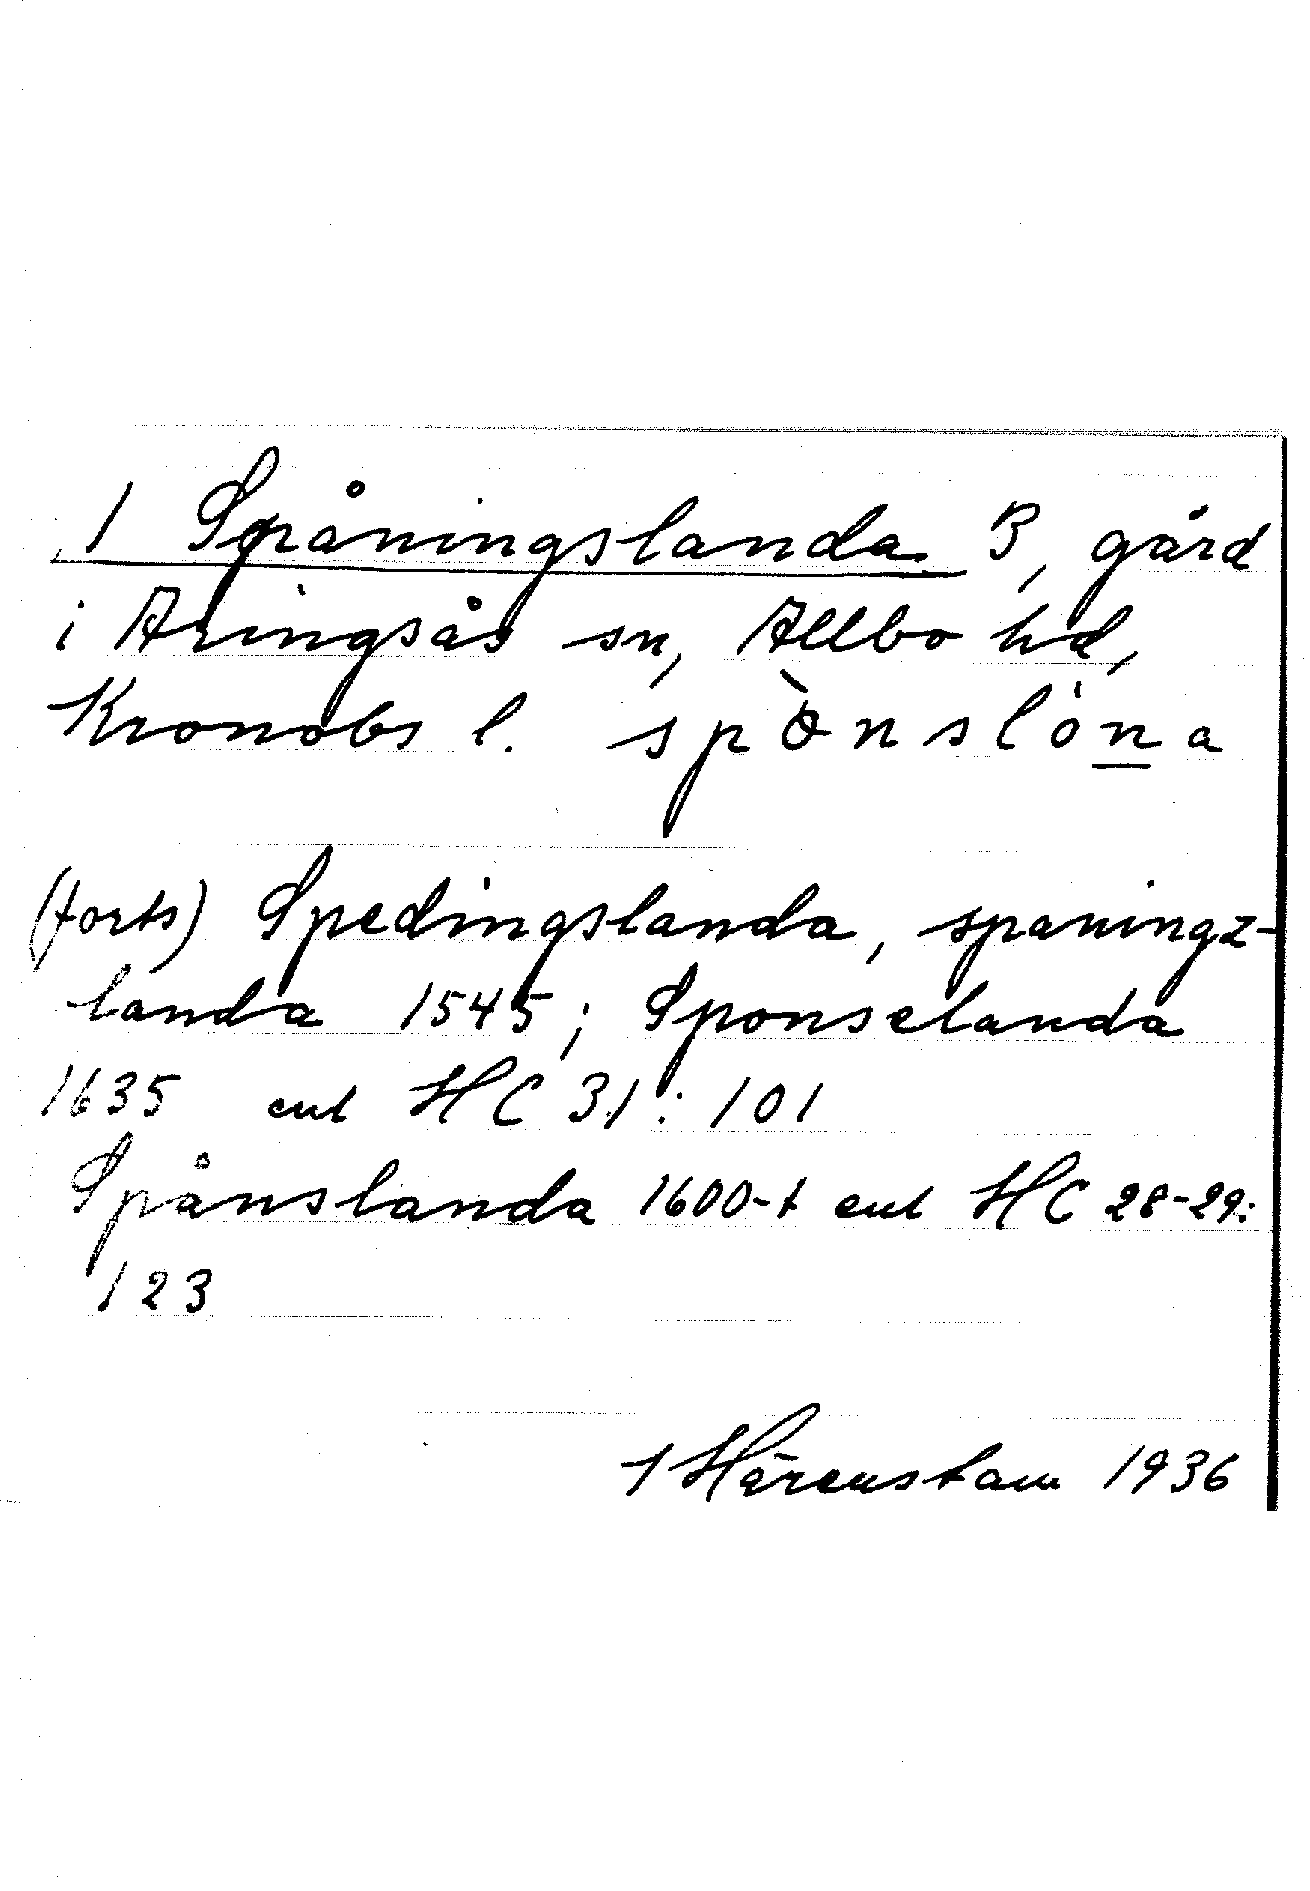 1 Spåningslanda B, gård
i Aringsås sn, Allbo hd,
Kronobs l. spònslòna
(forts) Spedingslanda, spaningz-
landa 1545; Sponselanda
1635 enl HC 31:101
Spånslanda 1600-t enl HC 28-29:
123
Härenstam 1936